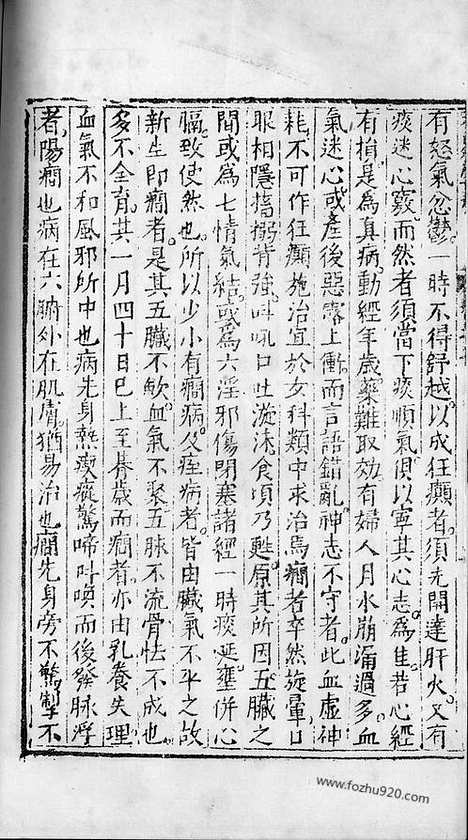 有怒氣忿鬱一時不得舒越以成狂癲者須先開達肝火又有
痰迷心竅而然者須當下痰順氣俱以寧其心志爲佳若心經
有損是爲真病動經年歲藥難取効有婦人月水崩漏過多血
氣迷心或產後惡露上衝而言語錯亂神志不守者此血虛神
耗不可作狂癲施治宜於女科類中求治焉癇者卒然旋暈口
眼相隱搐搦背強叫吼口吐漩沫食頃乃甦原其所因五臟之
間或爲七情氣結或爲六淫邪傷閉塞諸經一時痰涎壅併心
膈致使然也所以少小有癇病父痓病者皆由臟氣不平之故
新生即癇者是其五臟不軟血氣不聚五脉不流骨怯不成也
多不全育其一月四十日已上至朞歲而癇者亦由乳養失理
血氣不和風邪所中也病先身熱瘈瘲驚啼叫喚而後發脉浮
者陽癇也病在六腑外在肌膚猶易治也癇先身旁不驚掣不
www.fozhu920.com